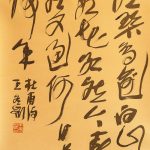 江碧鳥逾白山
青花欲然今春
看又過何日是
歸年
杜甫詩